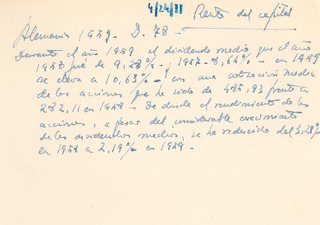 4/24/81 Renta del capital
Alemania 1959 - D. 78 -
Durante el año 1959 el dividendo medio que el año
1958 fué de 9,28% - ; 1957 - 8,62% - en 1959
se eleva a 10,63% - con una cotización media
de las acciones que ha sido de 485,93 frente a
282,11 en 1958 - De donde el rendimiento de las
acciones, a pesar del considerable crecimiento
de los dividendos medios, se ha reducido del 3,28%
en 1958 a 2,19% en 1959 -